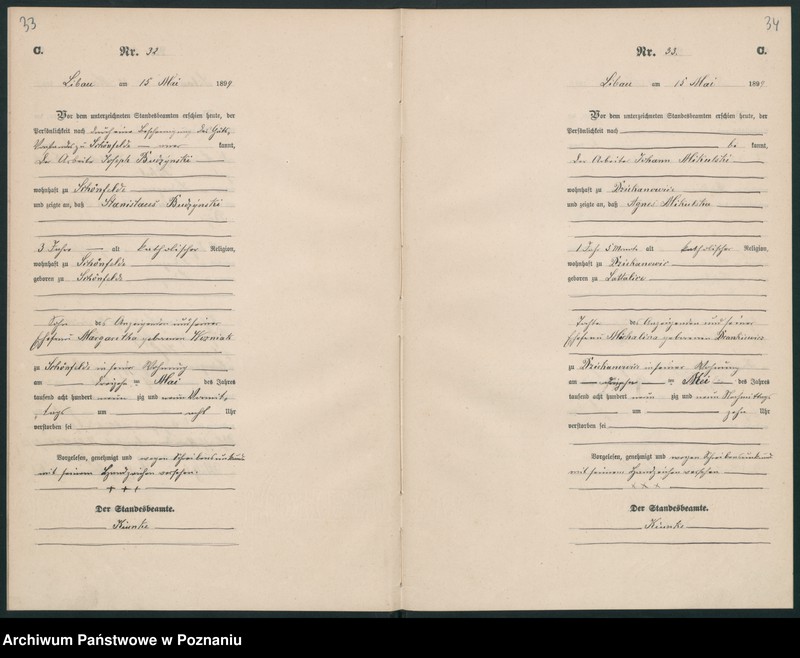 33
C.
Nr. 32
Libau am 15 Mai 1899
Vor dem unterzeichneten Standesbeamten erschien heute, der
Persönlichkeit nach durch eine Bescheinigung des Guts,
zu Schönfelde kannt,
der Arbeiter Joseph Budzynski
wohnhaft zu Schönfelde
und zeigte an, daß Stanislaus Budzynski
3 Jahre alt katholischer Religion,
wohnhaft zu Schönfelde
geboren zu Schönfelde
Sohn des Anzeigenden und seiner
Ehefrau Margaretha geborenen Wozniak
zu Schönfelde in seiner Wohnung
am Mai des Jahres
tausend acht hundert neun zig und neun Vormit,
tags um acht Uhr
verstorben sei
Vorgelesen, genehmigt und wegen Schreibensunkunde
mit seinem Handzeichen versehen
+ + +
Der Standesbeamte.
Kunke
34
Nr. 33.
C.
Libau am 15 Mai 1899
Vor dem unterzeichneten Standesbeamten erschien heute, der
Persönlichkeit nach
be kannt,
der Arbeiter Johann Mikulski
wohnhaft zu Dziekanowic
und zeigte an, daß Agnes Mikulska
1 Jahr 5 Monate alt katholischer Religion,
wohnhaft zu Dziekanowic
geboren zu
Tochter des Anzeigenden und seiner
Ehefrau Michalina geborenen
zu Dziekanowic in seiner Wohnung
am Mai des Jahres
tausend acht hundert neun zig und neun Nachmittags
um zehn Uhr
verstorben sei
Vorgelesen, genehmigt und wegen Schreibensunkunde
mit seinem Handzeichen versehen
× × ×
Der Standesbeamte.
Kunke
Archiwum Państwowe w Poznaniu